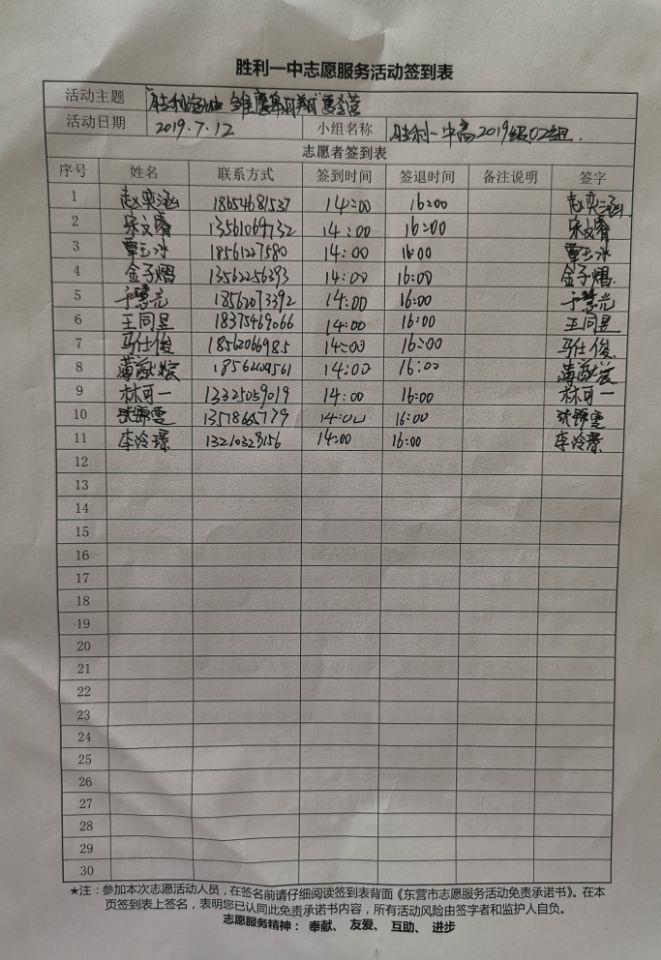 胜利一中志愿服务活动签到表
活动主题 胜利活动 雏鹰翱翔夏令营
活动日期 2019.7.12 小组名称 胜利一中高2019级02组.
志愿者签到表
序号 姓名 联系方式 签到时间 签退时间 备注说明 签字
1 赵奕涵 18654681537 14:00 16:00 赵奕涵
2 宋文睿 13561069732 14:00 16:00 宋文睿
3 覃玉冰 18561227580 14:00 16:00 覃玉冰
4 金子熠 13562256393 14:00 16:00 金子熠
5 于慧光 18562073392 14:00 16:00 于慧光
6 王同昱 18375469066 14:00 16:00 王同昱
7 马仕俊 18562066985 14:00 16:00 马仕俊
8 14:00 16:00
9 林可一 13325059019 14:00 16:00 林可一
10 张锦雯 14:00 16:00 张锦雯
11 李泠璟 13210328156 14:00 16:00 李泠璟
12
13
14
15
16
17
18
19
20
21
22
23
24
25
26
27
28
29
30
★注：参加本次志愿活动人员，在签名前请仔细阅读签到表背面《东营市志愿服务活动免责承诺书》。在本
页签到表上签名，表明您已认同此免责承诺书内容，所有活动风险由签字者和监护人自负。
志愿服务精神： 奉献、 友爱、 互助、 进步